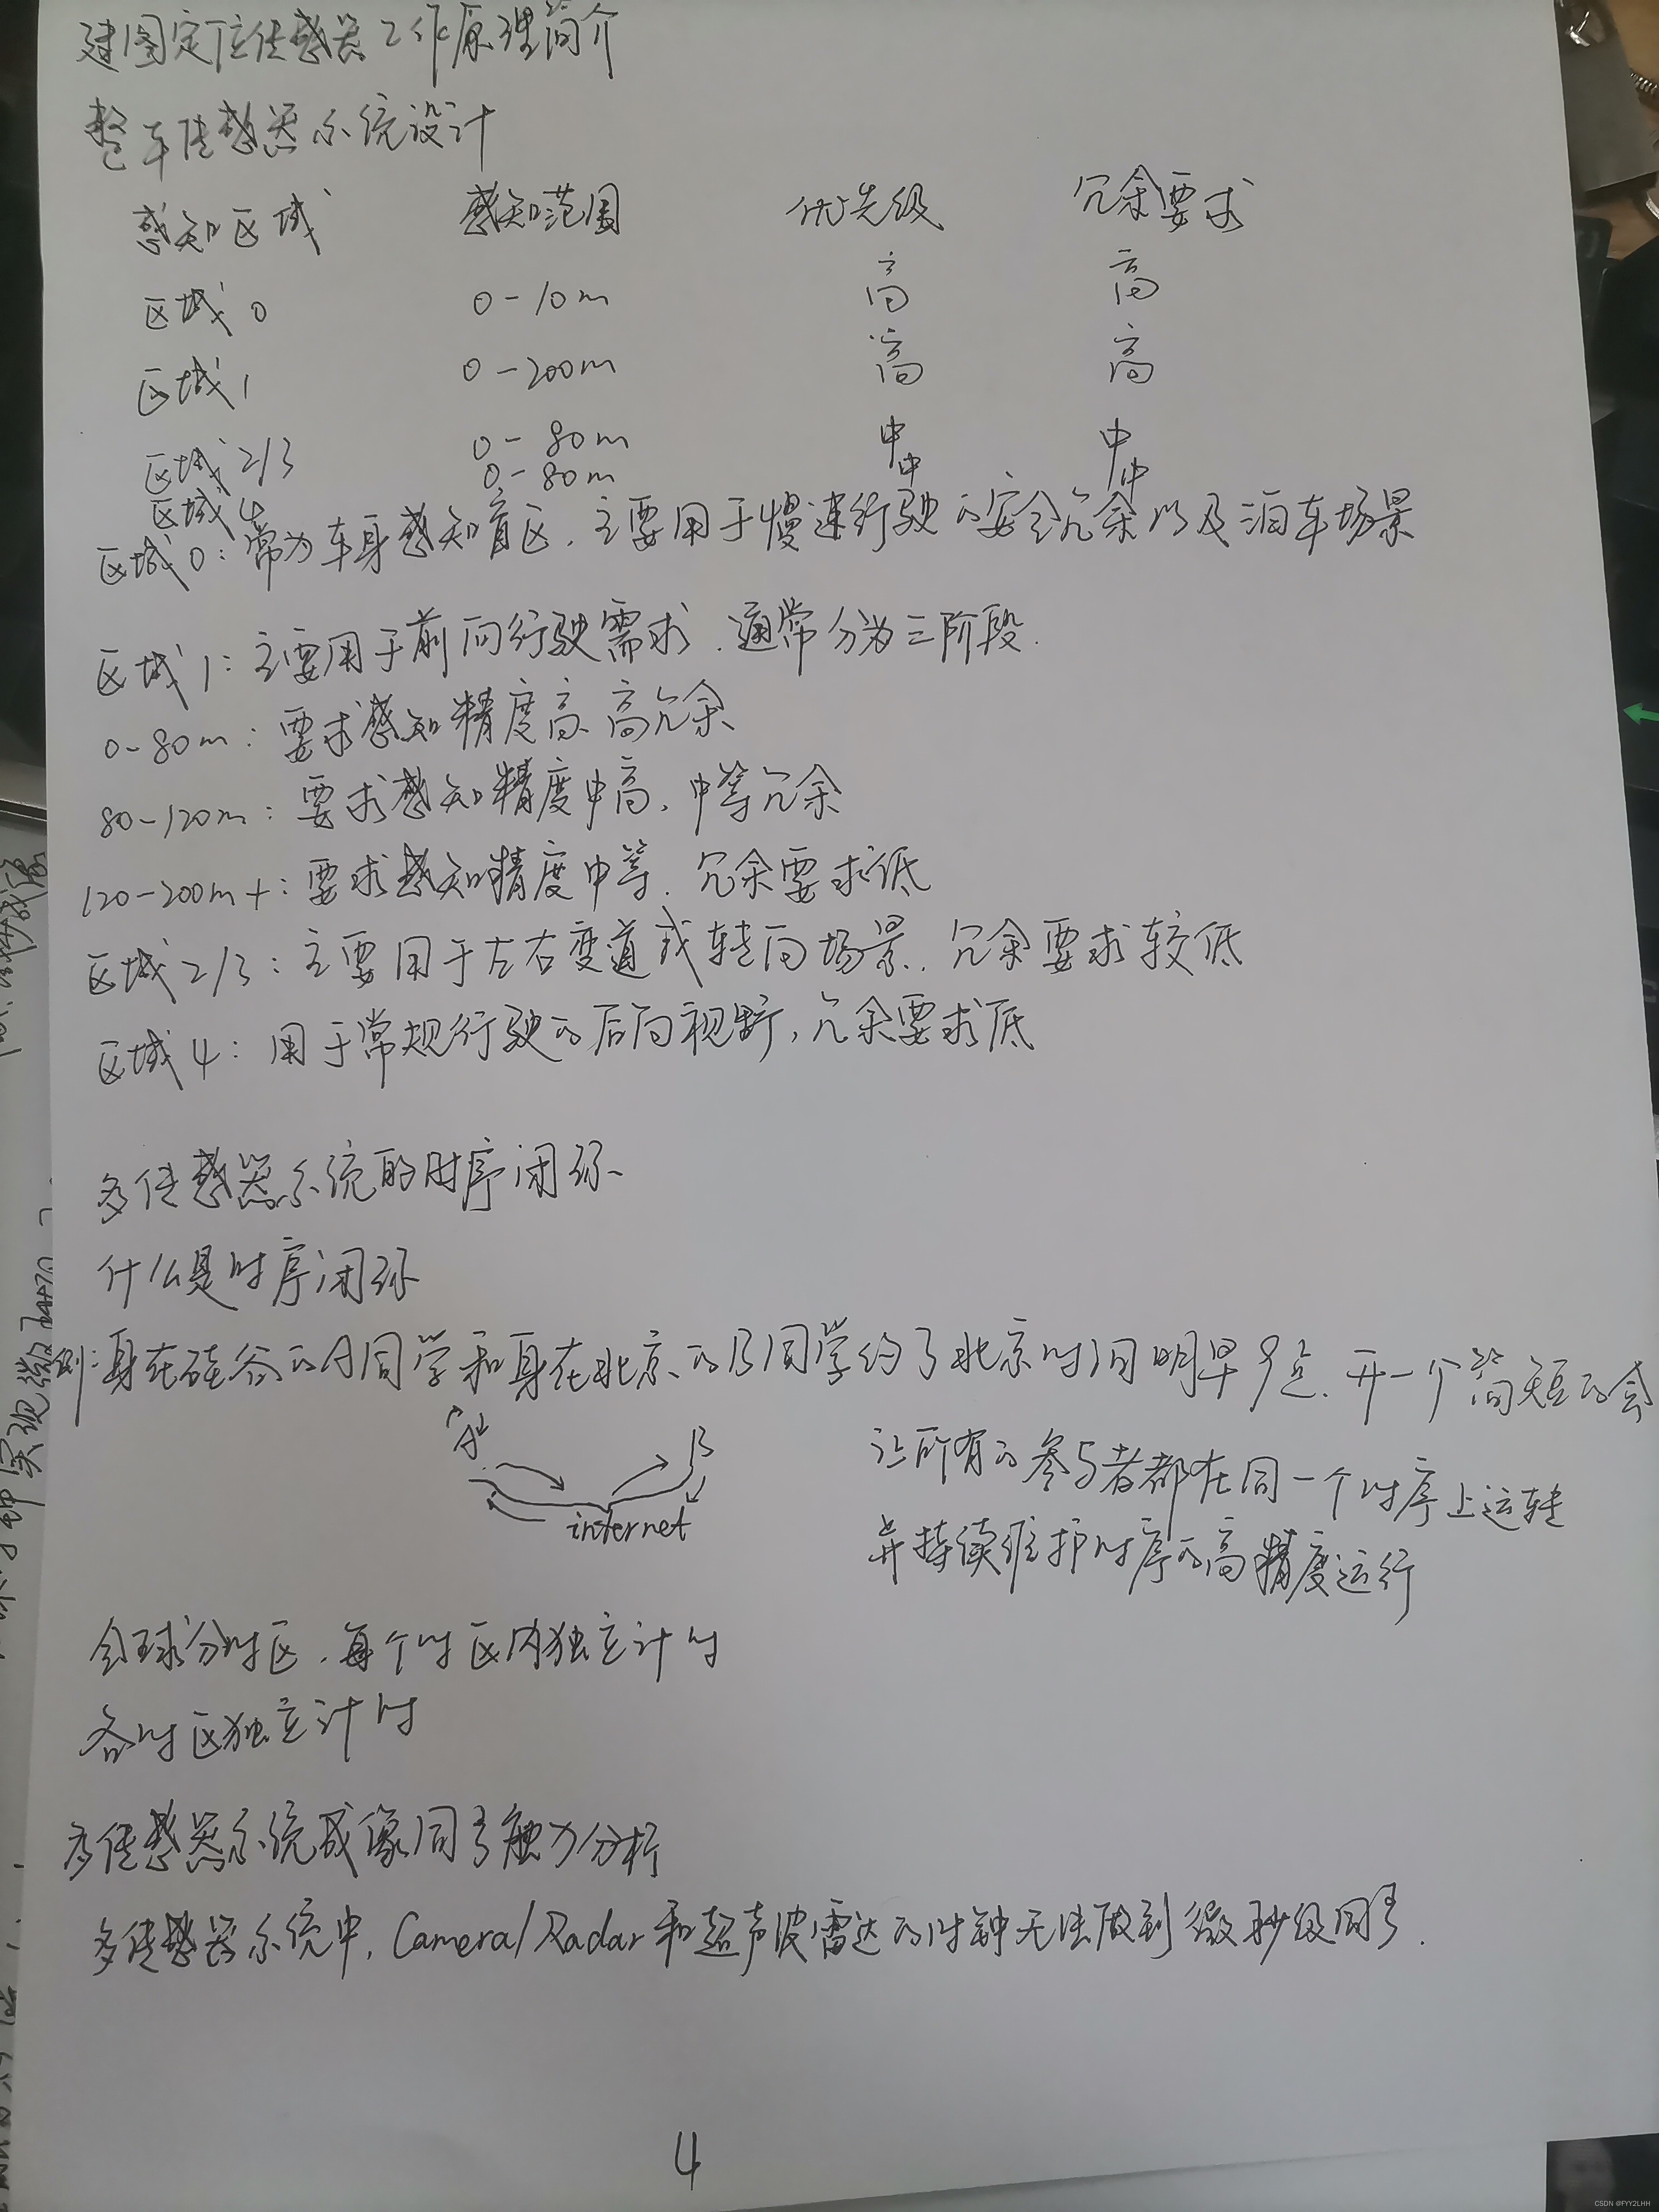 建图定位传感器工作原理简介
整车传感器系统设计
感知区域 感知范围 优先级 冗余要求
区域0 0-10m 高 高
区域1 0-200m 高 高
区域2/3 0-80m 中 中
区域4 0-80m 中 中
区域0:常为车身感知盲区,主要用于慢速行驶的安全冗余以及泊车场景
区域1:主要用于前向行驶需求.通常分为三阶段.
0-80m:要求感知精度高、高冗余
80-120m:要求感知精度中高,中等冗余
120-200m+:要求感知精度中等.冗余要求低
区域2/3:主要用于左右变道或转向场景.冗余要求较低
区域4:用于常规行驶的后向视野,冗余要求低
多传感器系统的时序闭环
什么是时序闭环
例:身在硅谷的A同学和身在北京的B同学约了北京时间明早9点.开一个简短的会
A B
internet
让所有的参与者都在同一个时序上运转
并持续维护时序的高精度运行
全球分时区,每个时区内独立计时
各时区独立计时
多传感器系统成像同步能力分析
多传感器系统中,Camera/Radar和超声波雷达的时钟无法做到微秒级同步.
4
CSDN @FYY2LHH